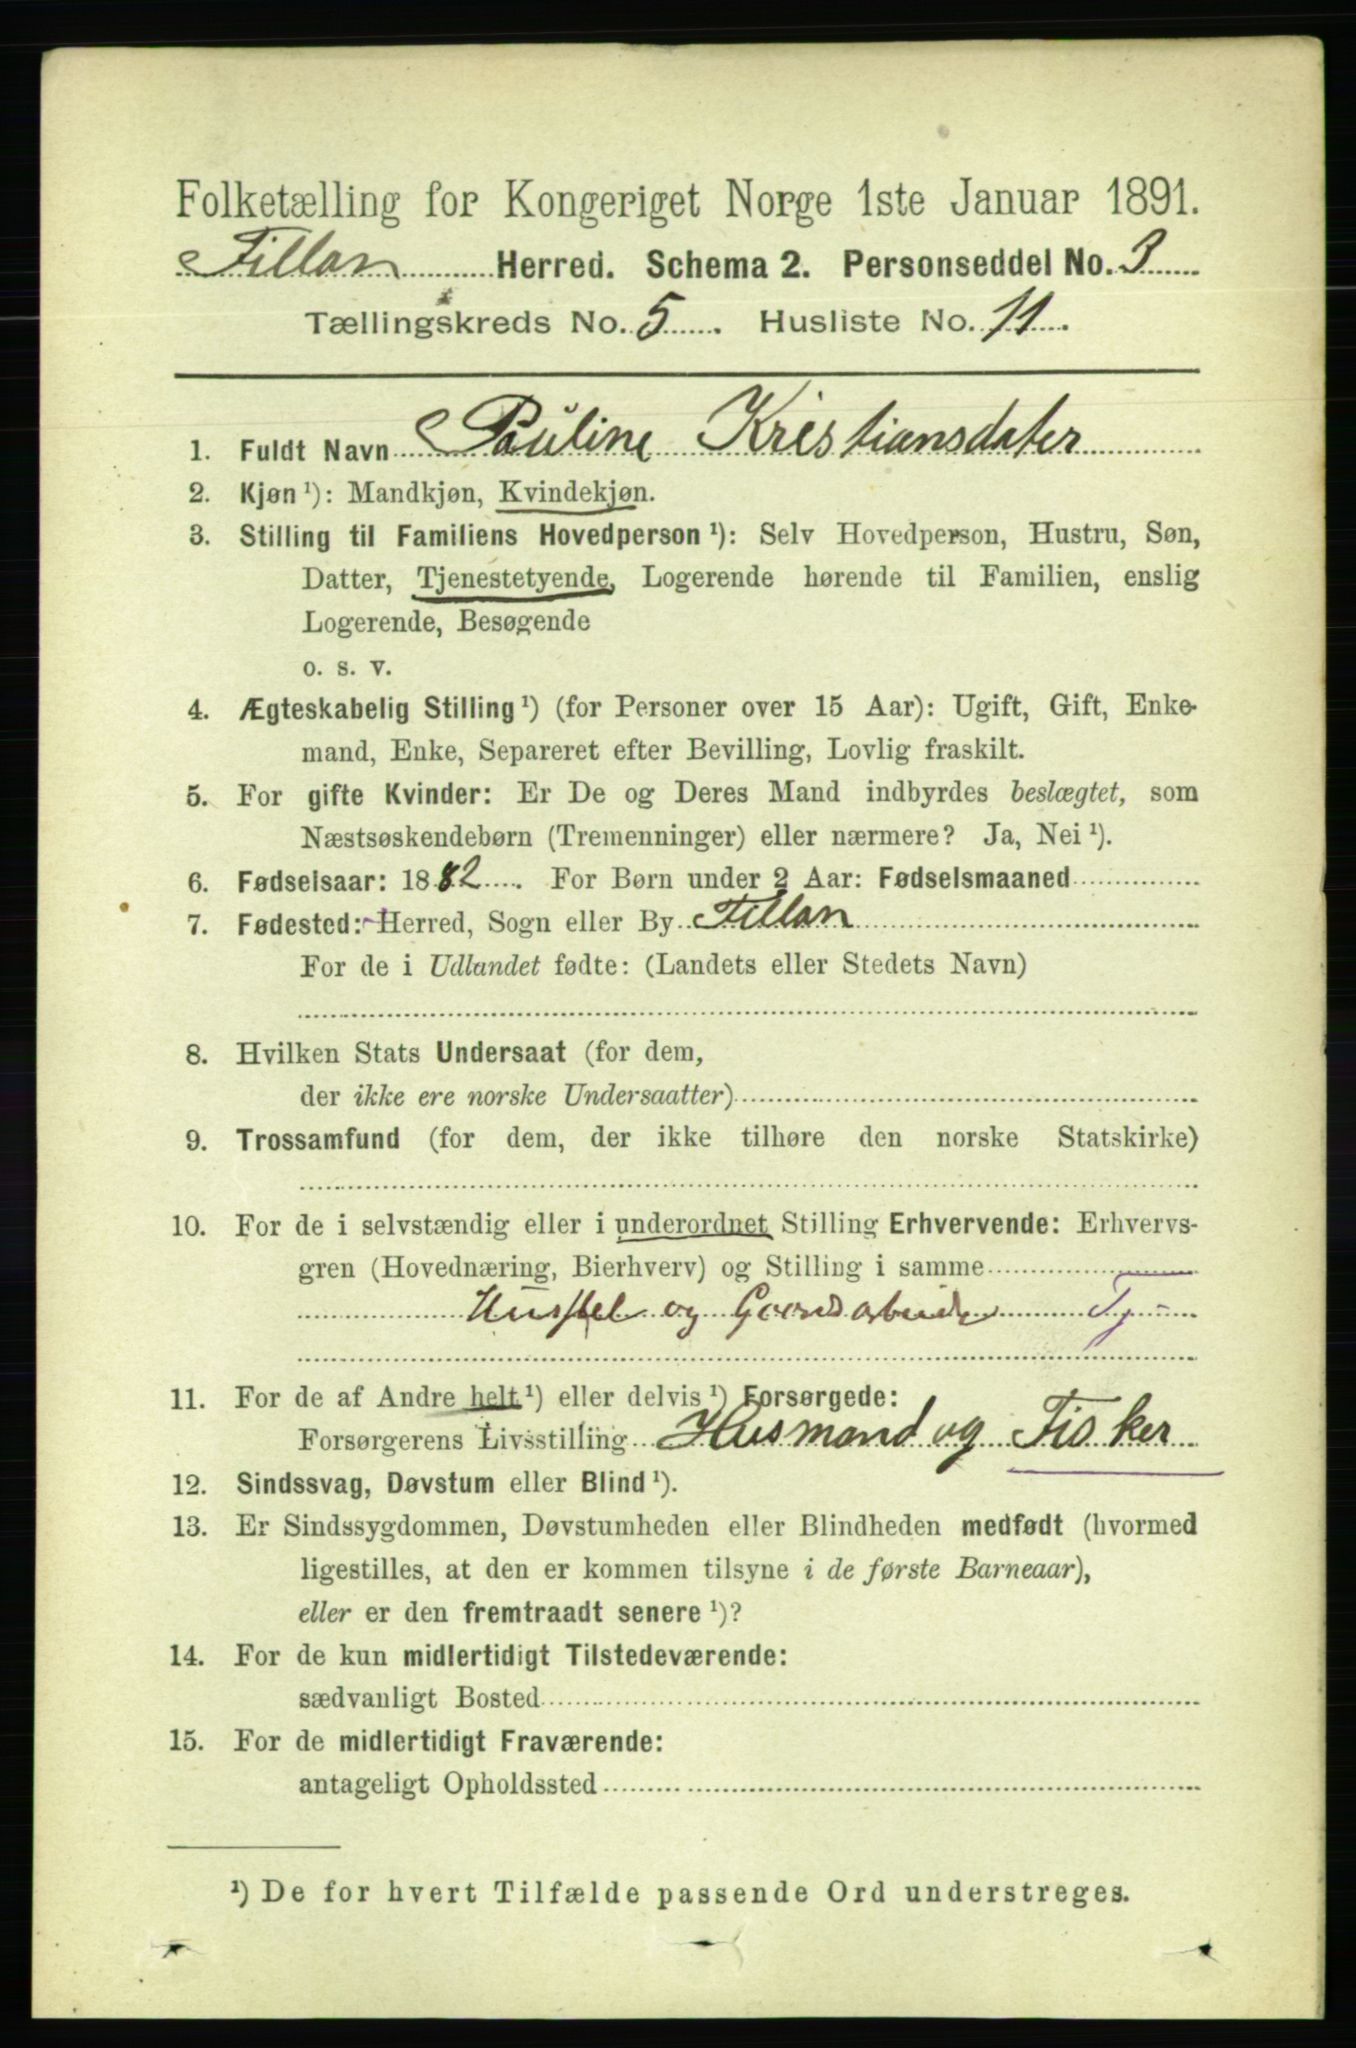 Folketælling for Kongeriget Norge 1ste Januar 1891.
Fillan Herred. Schema 2. Personseddel No. 3
Tællingskreds No. 5. Husliste No. 11.
1. Fuldt Navn Pauline Kristiansdater
2. Kjøn ¹): Mandkjøn, Kvindekjøn.
3. Stilling til Familiens Hovedperson ¹): Selv Hovedperson, Hustru, Søn,
Datter, Tjenestetyende, Logerende hørende til Familien, enslig
Logerende, Besøgende
o. s. v.
4. Ægteskabelig Stilling ¹) (for Personer over 15 Aar): Ugift, Gift, Enke-
mand, Enke, Separeret efter Bevilling, Lovlig fraskilt.
5. For gifte Kvinder: Er De og Deres Mand indbyrdes beslægtet, som
Næstsøskendebørn (Tremenninger) eller nærmere? Ja, Nei ¹).
6. Fødselsaar: 1882. For Børn under 2 Aar: Fødselsmaaned
7. Fødested: Herred, Sogn eller By Fillan
For de i Udlandet fødte: (Landets eller Stedets Navn)
8. Hvilken Stats Undersaat (for dem,
der ikke ere norske Undersaatter)
9. Trossamfund (for dem, der ikke tilhøre den norske Statskirke)
10. For de i selvstændig eller i underordnet Stilling Erhvervende: Erhvervs-
gren (Hovednæring, Bierhverv) og Stilling i samme
Husstel og Gaardsarbeide Tj
11. For de af Andre helt ¹) eller delvis ¹) Forsørgede:
Forsørgerens Livsstilling Husmand og Fisker
12. Sindssvag, Døvstum eller Blind ¹).
13. Er Sindssygdommen, Døvstumheden eller Blindheden medfødt (hvormed
ligestilles, at den er kommen tilsyne i de første Barneaar),
eller er den fremtraadt senere ¹)?
14. For de kun midlertidigt Tilstedeværende:
sædvanligt Bosted
15. For de midlertidigt Fraværende:
antageligt Opholdssted
¹) De for hvert Tilfælde passende Ord understreges.